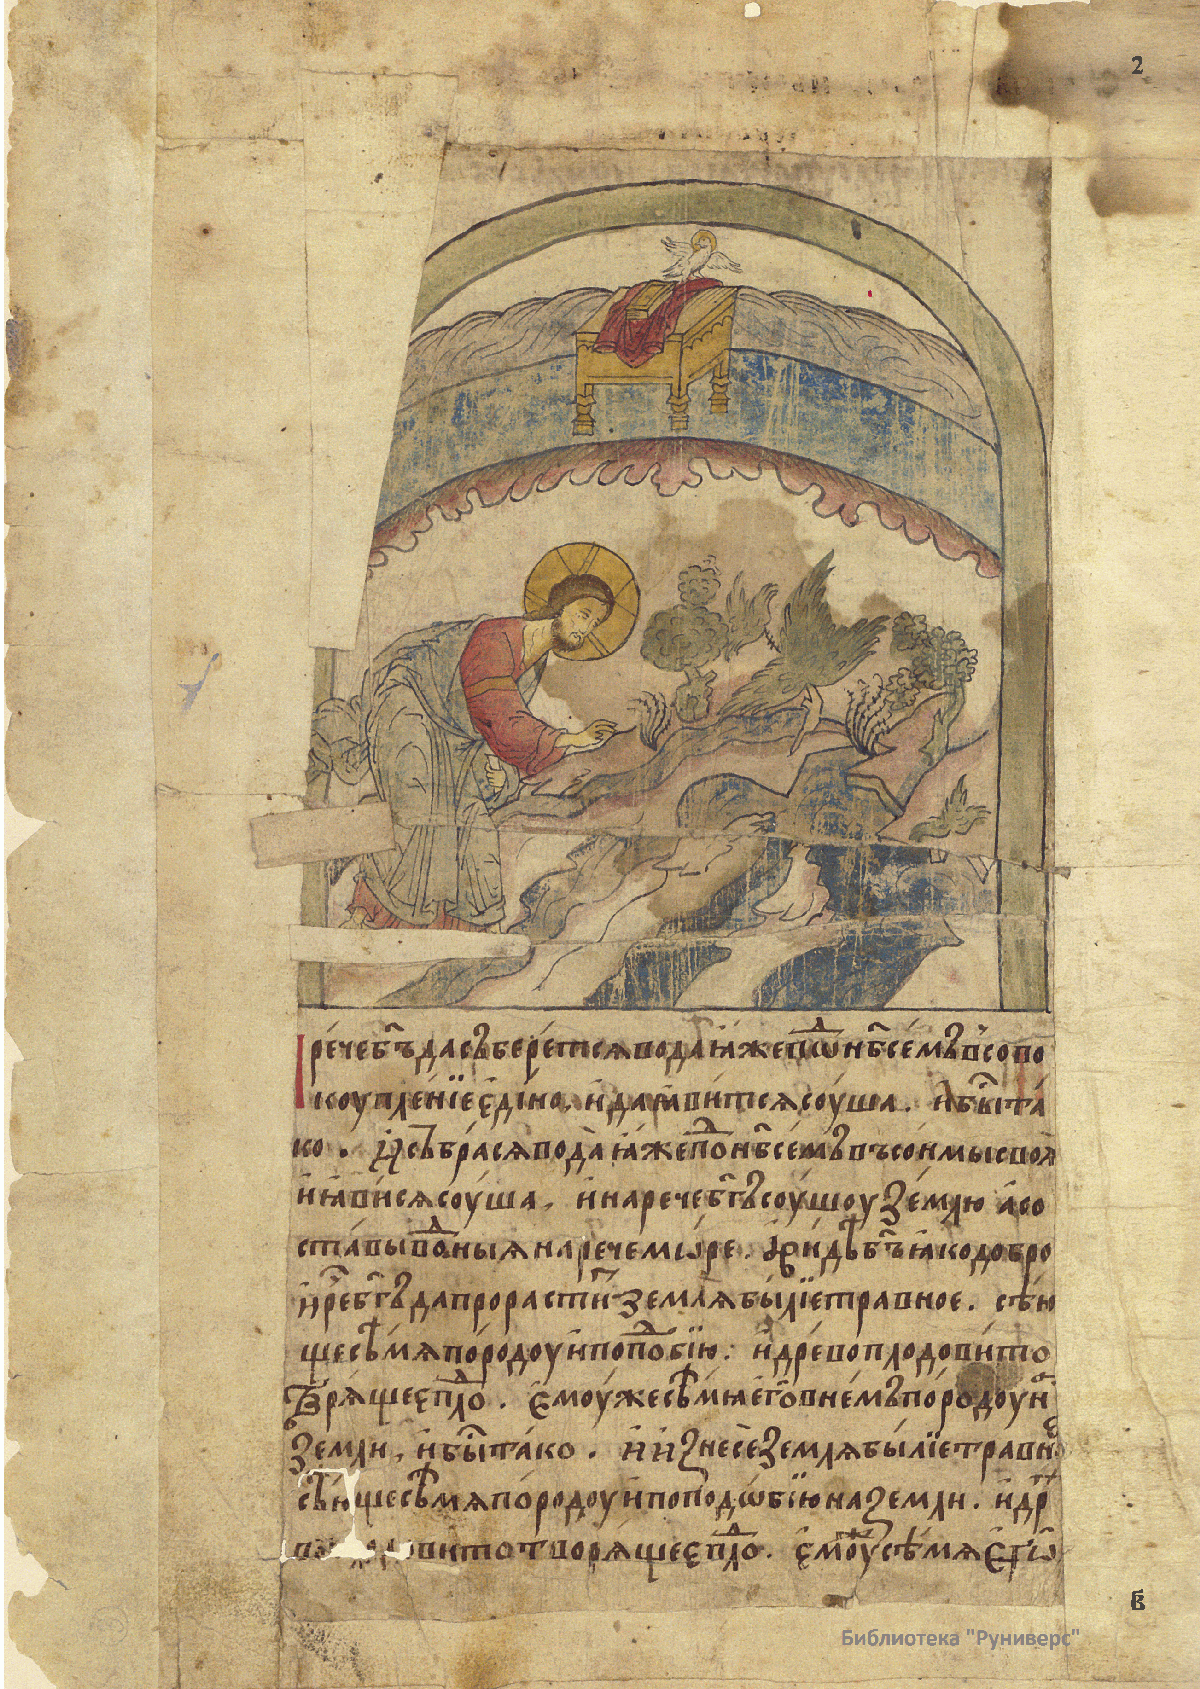 2
И рече б҃ъ да съберется вода ꙗже под̾ нб҃семъ въ сово
коупленїе едіно, и да ꙗвится соуша. и бы́ та
ко. И събрася вода ꙗже под̾ нб҃семъ въ сонмы своя
и ꙗвися соуша, и нарече б҃гъ соушоу землю а со
ставы водныя нарече мѡре. И видѣ б҃ъ ꙗко добро
и рече б҃гъ да прорастит̾ земля былїе травное. сѣю
ще сѣмя по родоу и по подобїю: и древо плодовито
творяще плод̾. Емоуже сѣмя его в нем въ породоу на
земли, и бы́ тако. и изнесе земля былїе травно
сѣюще сѣмя по родоу и по подѡбїю на земли. и др
во плодовито творяще плод̾. емоуже сѣмя Егѡ
в҃
Библиотека "Руниверс"